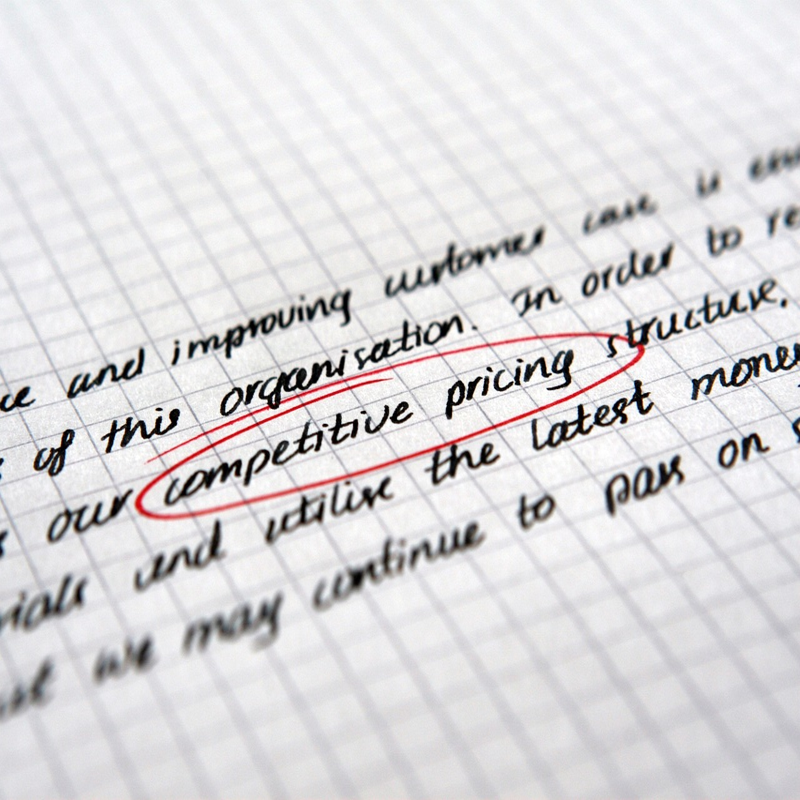 and improving customer care is
of this organisation. In order to re
our competitive pricing structure,
and utilise the latest money
we may continue to pass on s